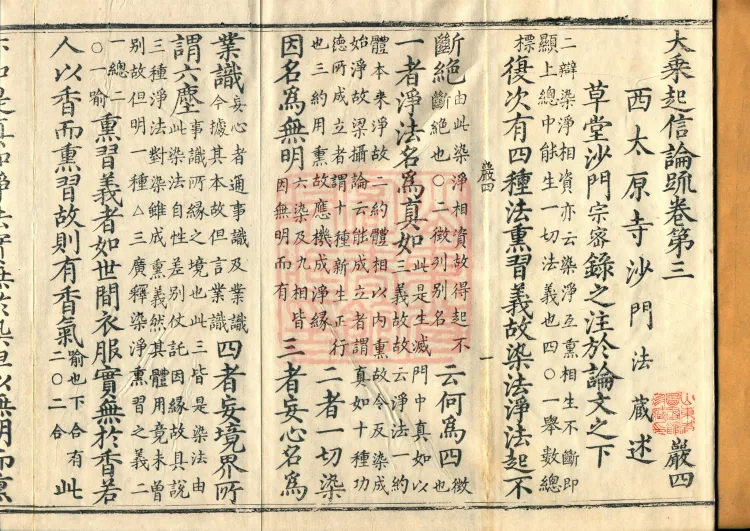 大乘起信論䟽卷第三 嚴四
西太原寺沙門法藏述
草堂沙門宗密錄之注於論文之下
二辯染淨相資亦云染淨互熏相生不斷即
顯上總中能生一切法義也四〇一舉數總
標復次有四種法熏習義故染法淨法起不
嚴四 一
斷絶由此染淨相資故得起不斷絶也〇二徵列別名云何爲四徵也
一者淨法名爲真如此是生滅門中真如以三義故故云淨法一約
體本来淨故二約體相以内熏故令反染成
始淨故梁攝論云能成立者謂真如十種功
德所成立者謂十種新生正行也三約用熏故應機成淨緣二者一切染
因名爲無明六染及九相皆因無明而有三者妄心名爲
業識妄心者通事識及業識今據其本故但言業識四者妄境界所
謂六塵事識所緣之境也此三皆是染法由此染法自性差别仗託因緣故具說
三種淨法對染雖成熏義然其體用竟未曾
別故但明一種△三廣釋染淨熏習之義二
一總二〇一喻熏習義者如世間衣服實無於香若
人以香而熏習故則有香氣喻也下合有二〇二合此